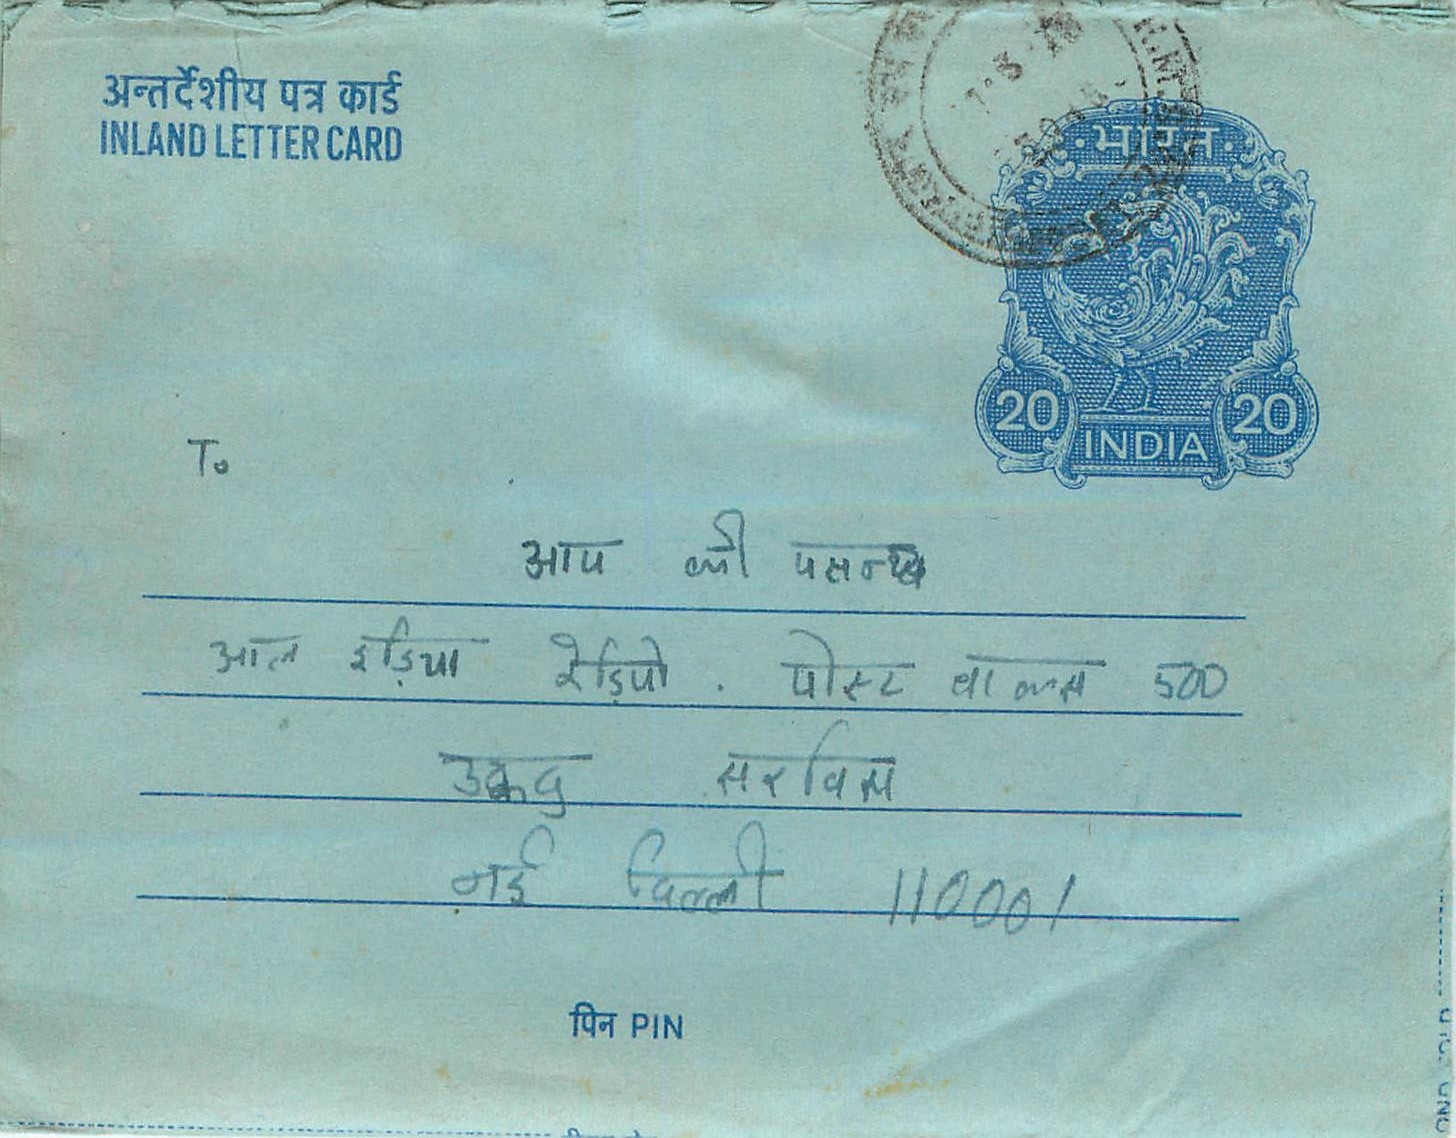 अन्तर्देशीय पत्र कार्ड
INLAND LETTER CARD
भारत
20 20
INDIA
To
आप की पसन्द
आल इड़िया रेड़ियो . पोस्ट वाक्स 500
सरविस
नई दिल्ली 110001
पिन PIN